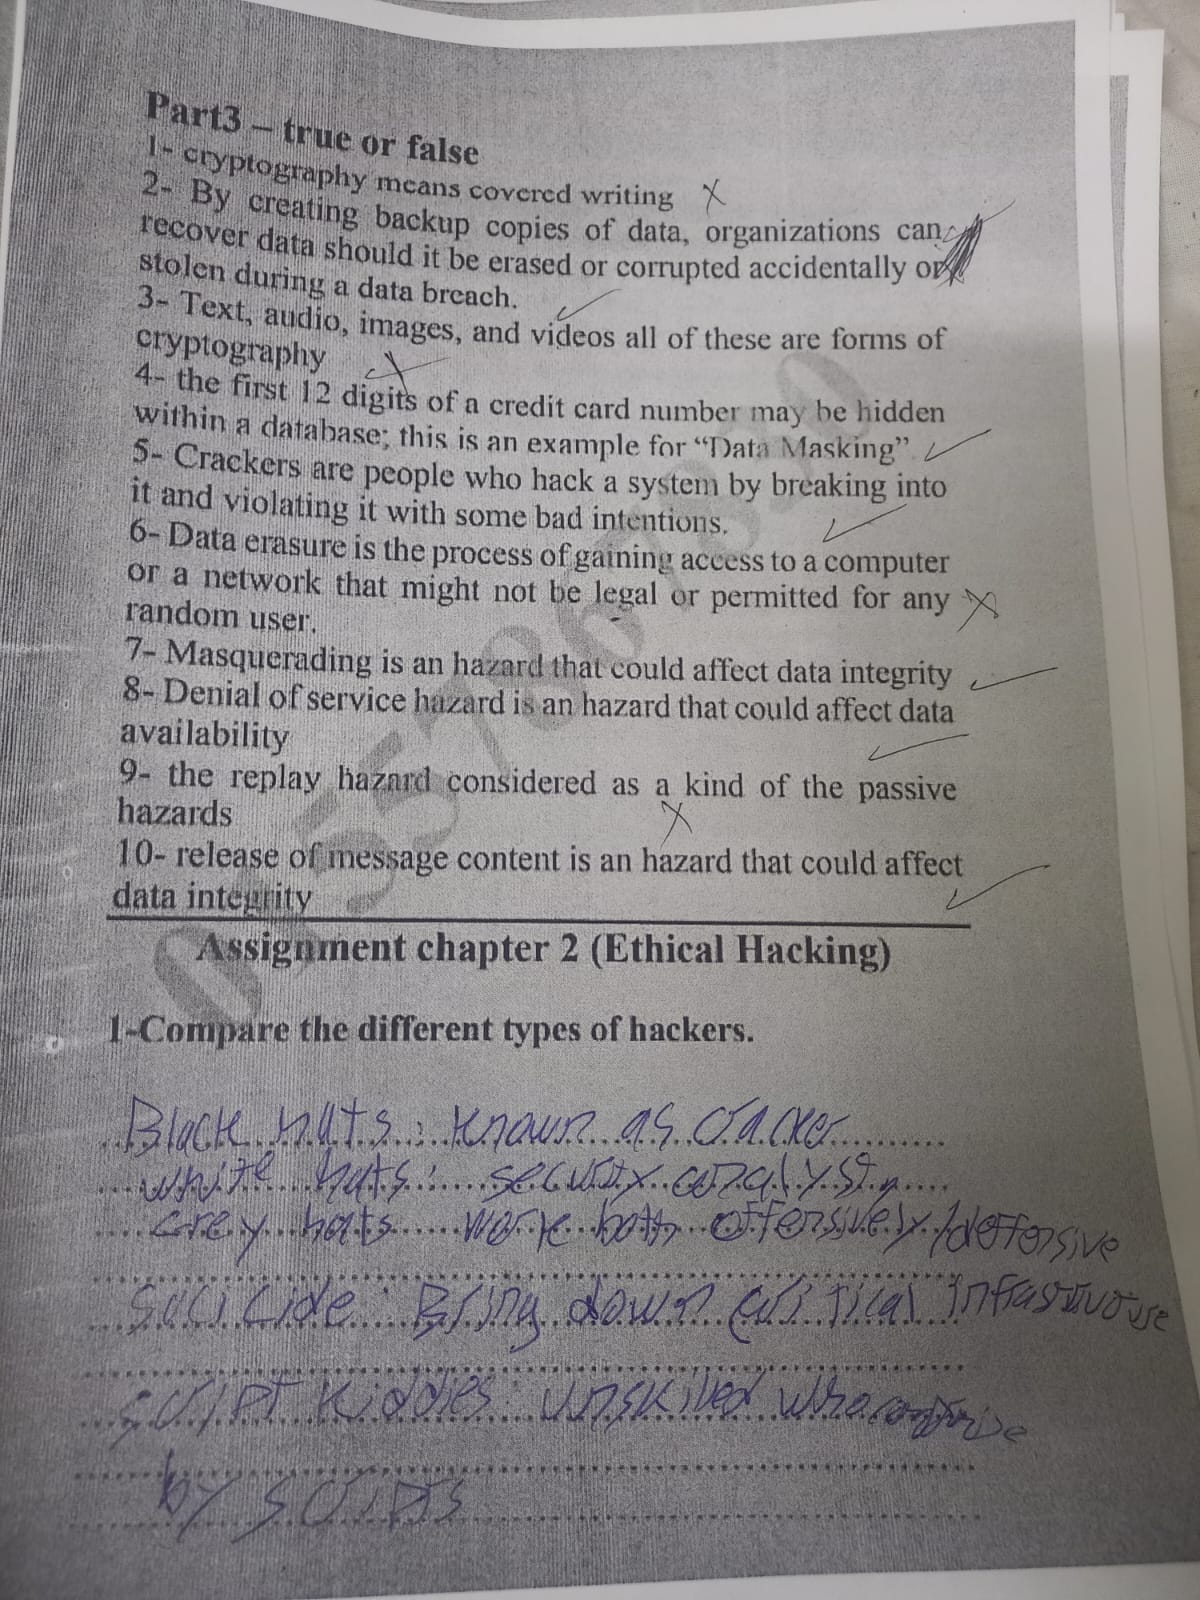 Part3 – true or false
1- cryptography means covered writing X
2- By creating backup copies of data, organizations can
recover data should it be erased or corrupted accidentally or
stolen during a data breach. ✓
3- Text, audio, images, and videos all of these are forms of
cryptography X
4- the first 12 digits of a credit card number may be hidden
within a database; this is an example for “Data Masking” ✓
5- Crackers are people who hack a system by breaking into
it and violating it with some bad intentions. ✓
6- Data erasure is the process of gaining access to a computer
or a network that might not be legal or permitted for any X
random user.
7- Masquerading is an hazard that could affect data integrity ✓
8- Denial of service hazard is an hazard that could affect data
availability ✓
9- the replay hazard considered as a kind of the passive
hazards X
10- release of message content is an hazard that could affect
data integrity ✓
Assignment chapter 2 (Ethical Hacking)
1-Compare the different types of hackers.
Black hats: Known as
white hats: security
Grey hats work both offensively/
: Bring down critical
Kiddies:
by